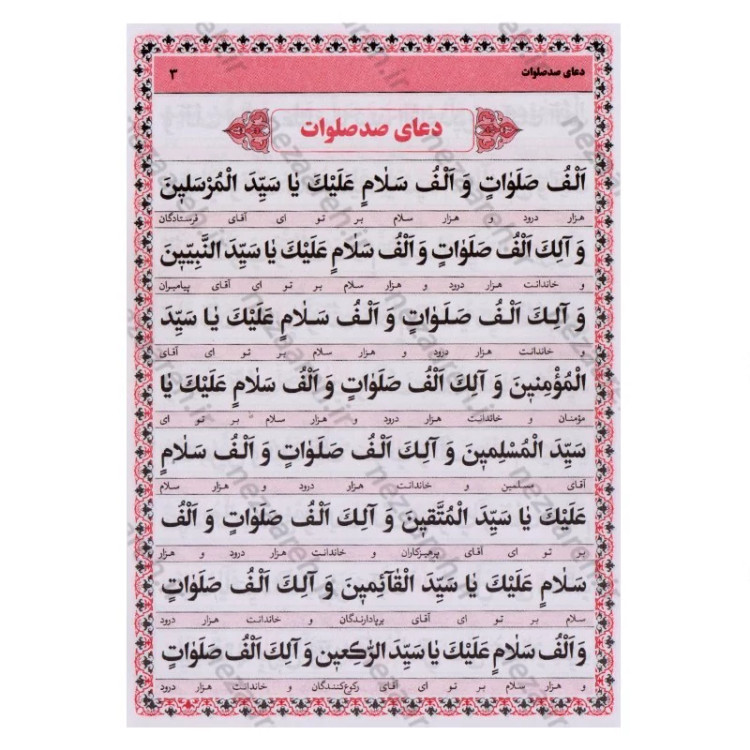 دعای صدصلوات
۳
دعای صدصلوات
اَلْفُ صَلَوٰاتٍ وَ اَلْفُ سَلٰامٍ عَلَیْكَ یٰا سَیِّدَ الْمُرْسَلینَ
هزار درود و هزار سلام بر تو ای آقای فرستادگان
وَ آلِكَ اَلْفُ صَلَوٰاتٍ وَ اَلْفُ سَلٰامٍ عَلَیْكَ یٰا سَیِّدَ النَّبِیّینَ
و خاندانت هزار درود و هزار سلام بر تو ای آقای پیامبران
وَ آلِكَ اَلْفُ صَلَوٰاتٍ وَ اَلْفُ سَلٰامٍ عَلَیْكَ یٰا سَیِّدَ
و خاندانت هزار درود و هزار سلام بر تو ای آقای
الْمُؤْمِنینَ وَ آلِكَ اَلْفُ صَلَوٰاتٍ وَ اَلْفُ سَلٰامٍ عَلَیْكَ یٰا
مؤمنان و خاندانت هزار درود و هزار سلام بر تو ای
سَیِّدَ الْمُسْلِمینَ وَ آلِكَ اَلْفُ صَلَوٰاتٍ وَ اَلْفُ سَلٰامٍ
آقای مسلمین و خاندانت هزار درود و هزار سلام
عَلَیْكَ یٰا سَیِّدَ الْمُتَّقینَ وَ آلِكَ اَلْفُ صَلَوٰاتٍ وَ اَلْفُ
بر تو ای آقای پرهیزکاران و خاندانت هزار درود و هزار
سَلٰامٍ عَلَیْكَ یٰا سَیِّدَ الْقٰآئِمینَ وَ آلِكَ اَلْفُ صَلَوٰاتٍ
سلام بر تو ای آقای برپادارندگان و خاندانت هزار درود
وَ اَلْفُ سَلٰامٍ عَلَیْكَ یٰا سَیِّدَ الرّٰكِعینَ وَ آلِكَ اَلْفُ صَلَوٰاتٍ
و هزار سلام بر تو ای آقای رکوع‌کنندگان و خاندانت هزار درود
nezaareh.ir